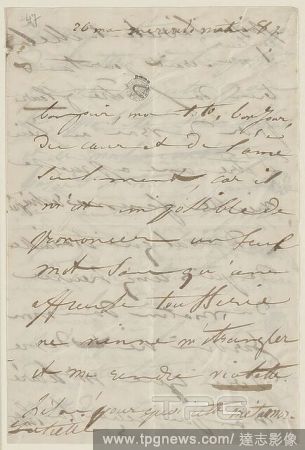 47
26 mai mercredi matin 8h
bonjour, mon t. b. bonjour,
du cœur et de l'âme
seulement, car il
m'est impossible de
prononcer un seul
mot sans qu'une
affreuse tousserie
ne vienne m'étrangler
et me rendre violette.
pourquoi
TPG
www.tpgnews.com / 達志影像